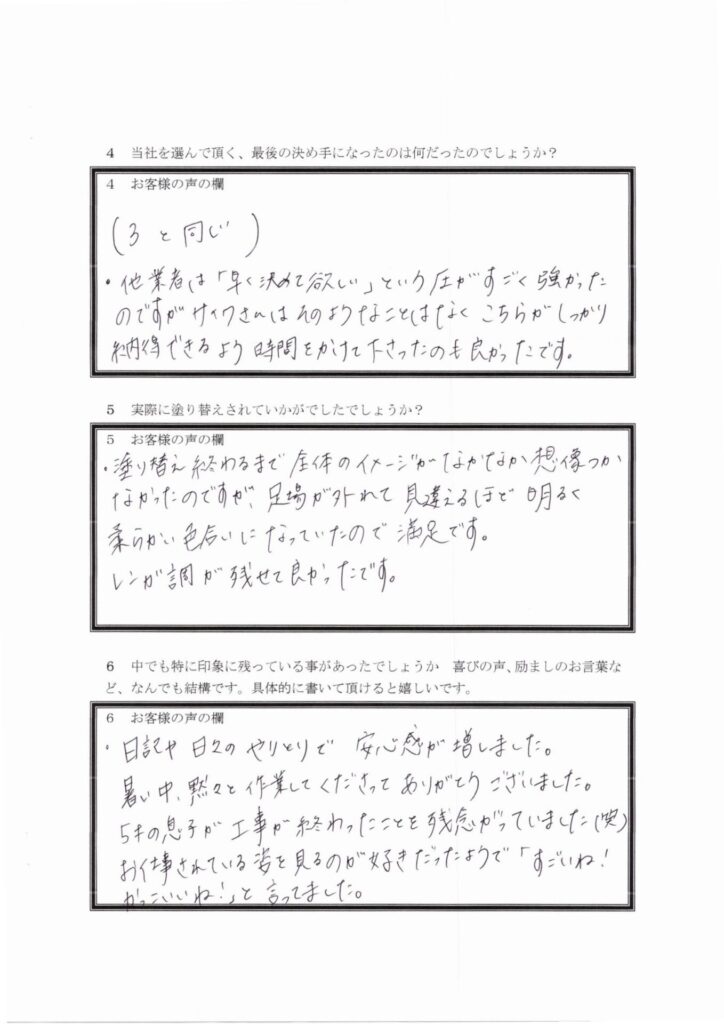 4 当社を選んで頂く、最後の決め手になったのは何だったのでしょうか？
4 お客様の声の欄
(3と同じ)
・他業者は「早く決めて欲しい」という圧がすごく強かった
のですがサイワさんはそのようなことはなくこちらがしっかり
納得できるよう時間をかけて下さったのも良かったです。
5 実際に塗り替えされていかがでしたでしょうか？
5 お客様の声の欄
・塗り替え終わるまで全体のイメージがなかなか想像つか
なかったのですが、足場が外れて見違えるほど明るく
柔らかい色合いになっていたので満足です。
レンガ調が残せて良かったです。
6 中でも特に印象に残っている事があったでしょうか 喜びの声、励ましのお言葉な
ど、なんでも結構です。具体的に書いて頂けると嬉しいです。
6 お客様の声の欄
・日記や日々のやりとりで安心感が増しました。
暑い中、黙々と作業してくださってありがとうございました。
5才の息子が工事が終わったことを残念がっていました(笑)
お仕事されている姿を見るのが好きだったようで「すごいね！
かっこいいね！」と言ってました。